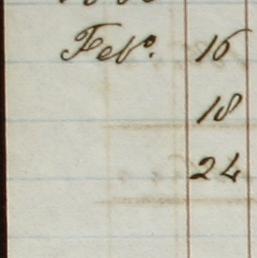 Febo. 16
18
24